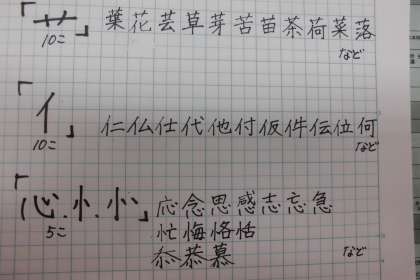 「艹」 葉花芸草芽苦苗茶荷菜落
10こ など
「亻」 仁仏仕代他付仮件伝位何
10こ など
「心・忄・㣺」 応念思感志忘急
5こ 忙悔恪恬
忝恭慕 など